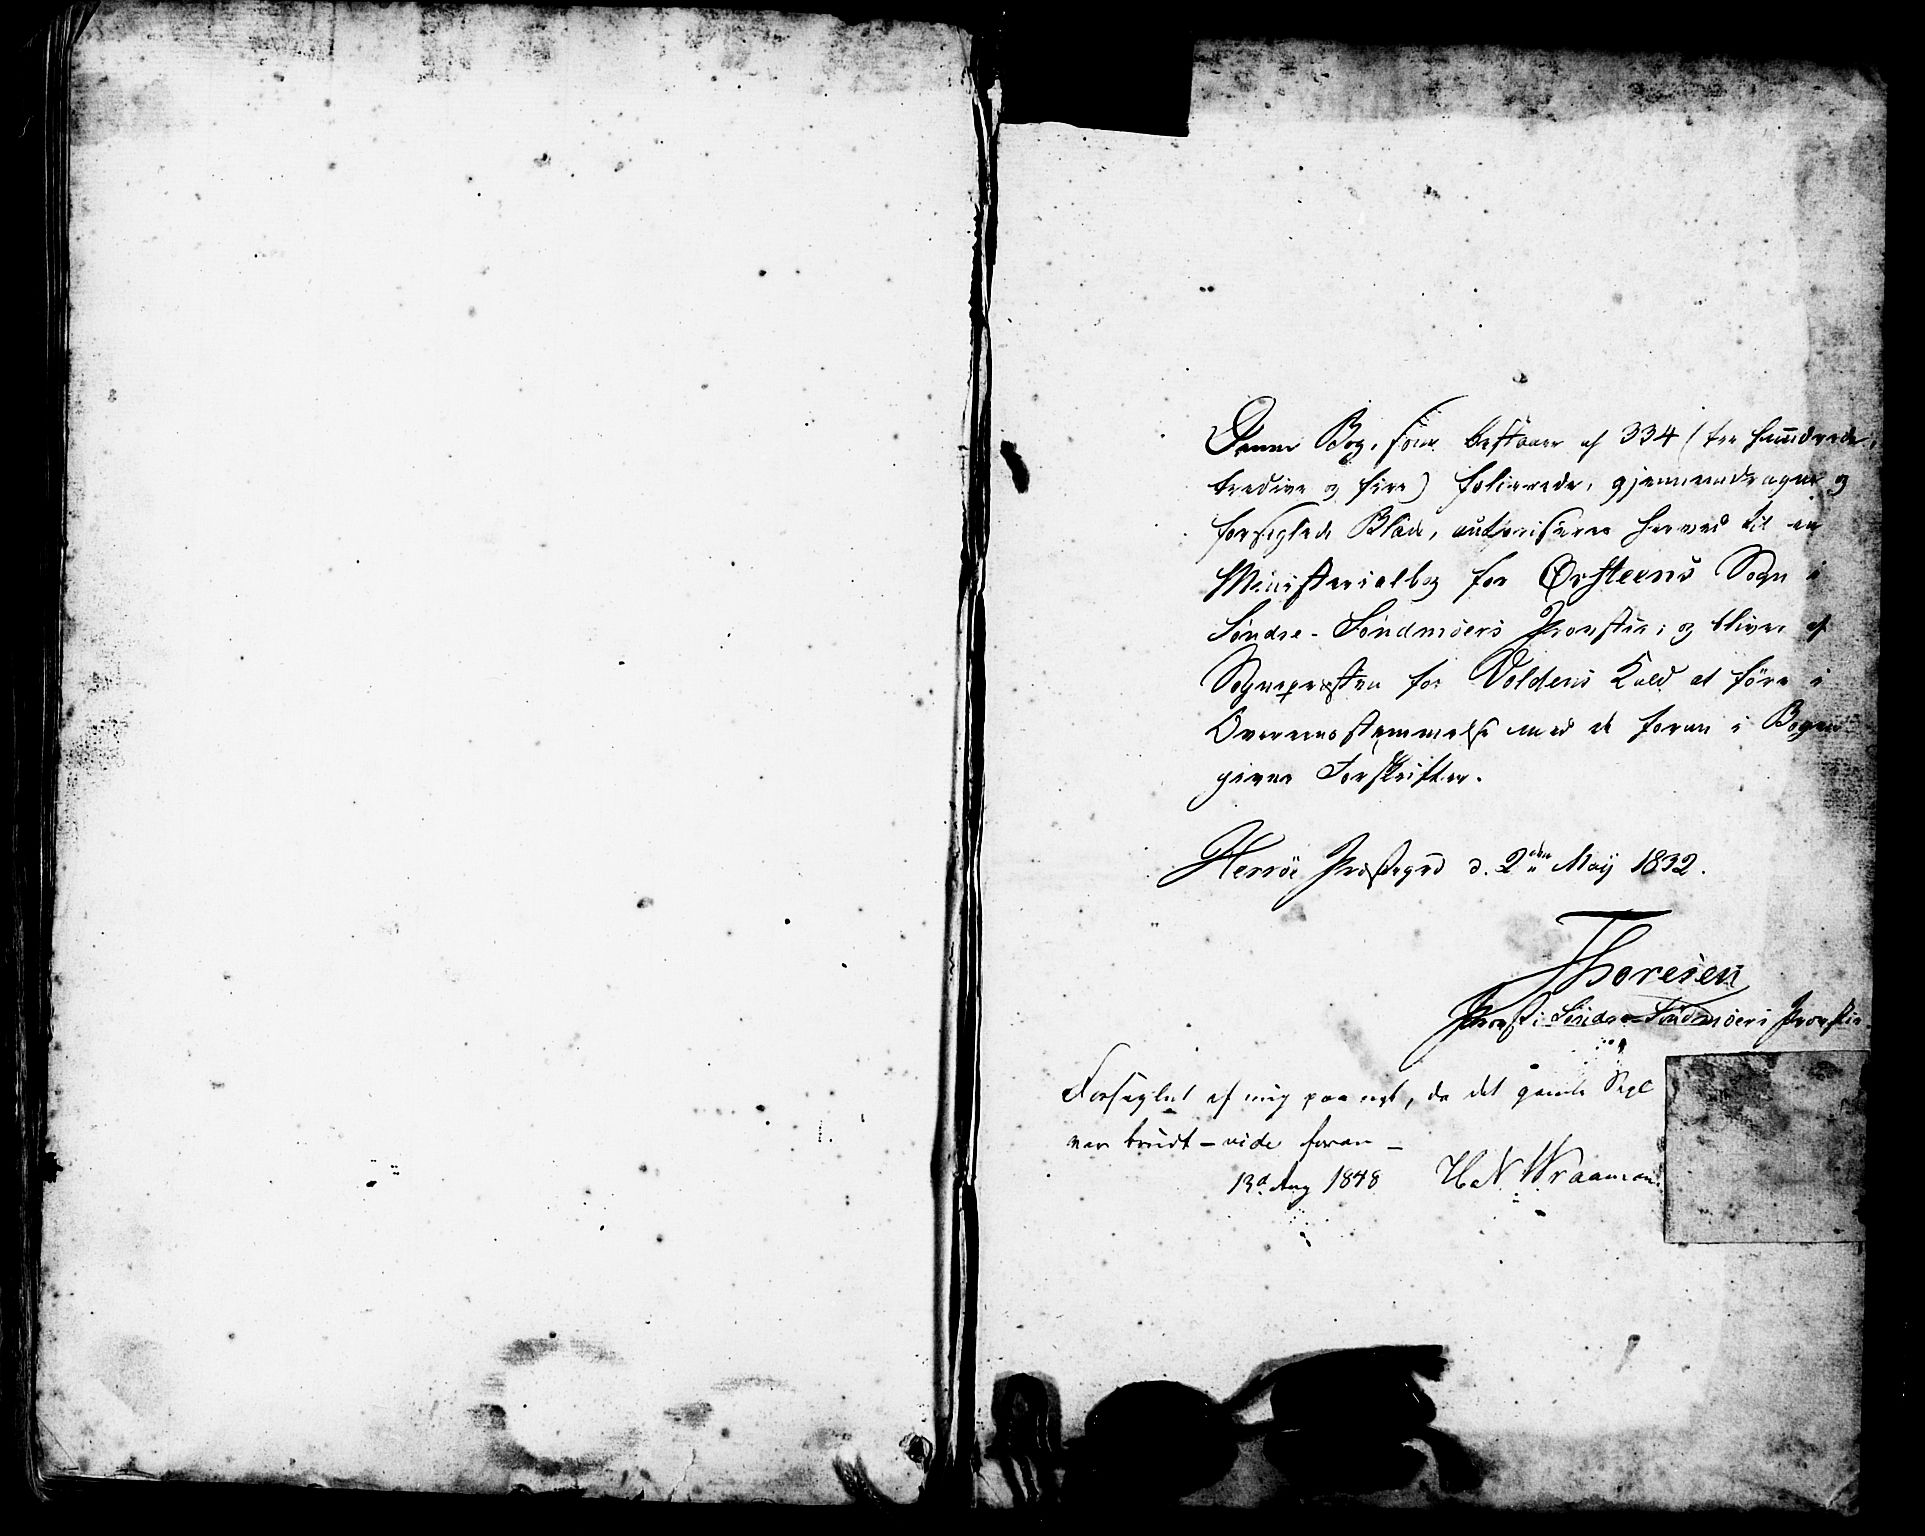 Denne Bog, som bestaaer af 334 (tre hundrede,
tredive og fire) folierede, gjennemdragne og
forseglede Blade, autoriseres herved til en
Ministerialbog for Ørsteens Sogn i
Søndre-Søndmöers Provstie; og bliver af
Sognepresten for Voldens Kald at före i
Overeensstemmelse med de foran i Bogen
givne Forskrifter.
Herröe Præstegrd d. 2den Maÿ 1832.
Thoresen
Provst i Söndre-Söndmöers Provstie.
Forseglet af mig paa nyt, da det gamle Segl
var brudt – vide foran –
13d Aug 1848 H N Wraamann